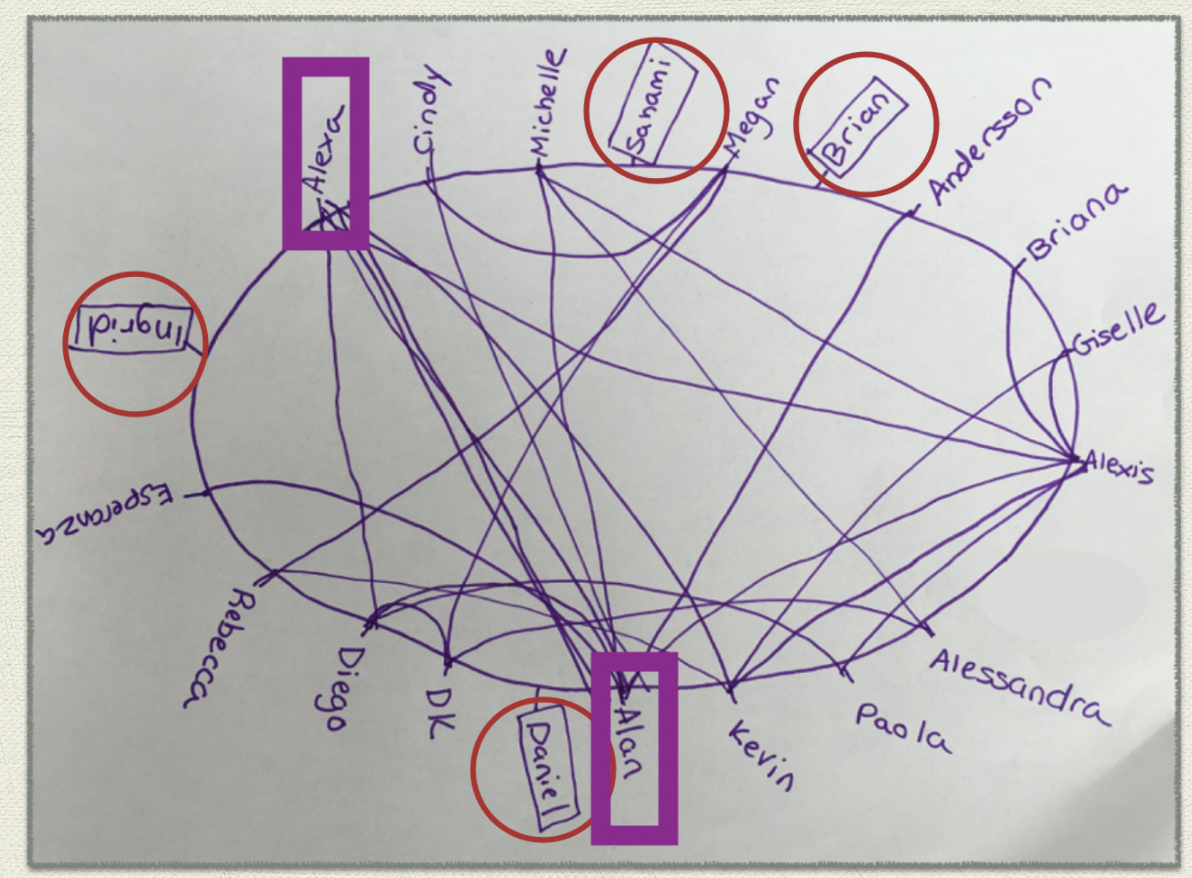 Alexa
Cindy
Michelle
Sanami
Megan
Brian
Andersson
Briana
Giselle
Alexis
Alessandra
Paola
Kevin
Alan
Daniel
DK
Diego
Rebecca
Esperanza
Ingrid